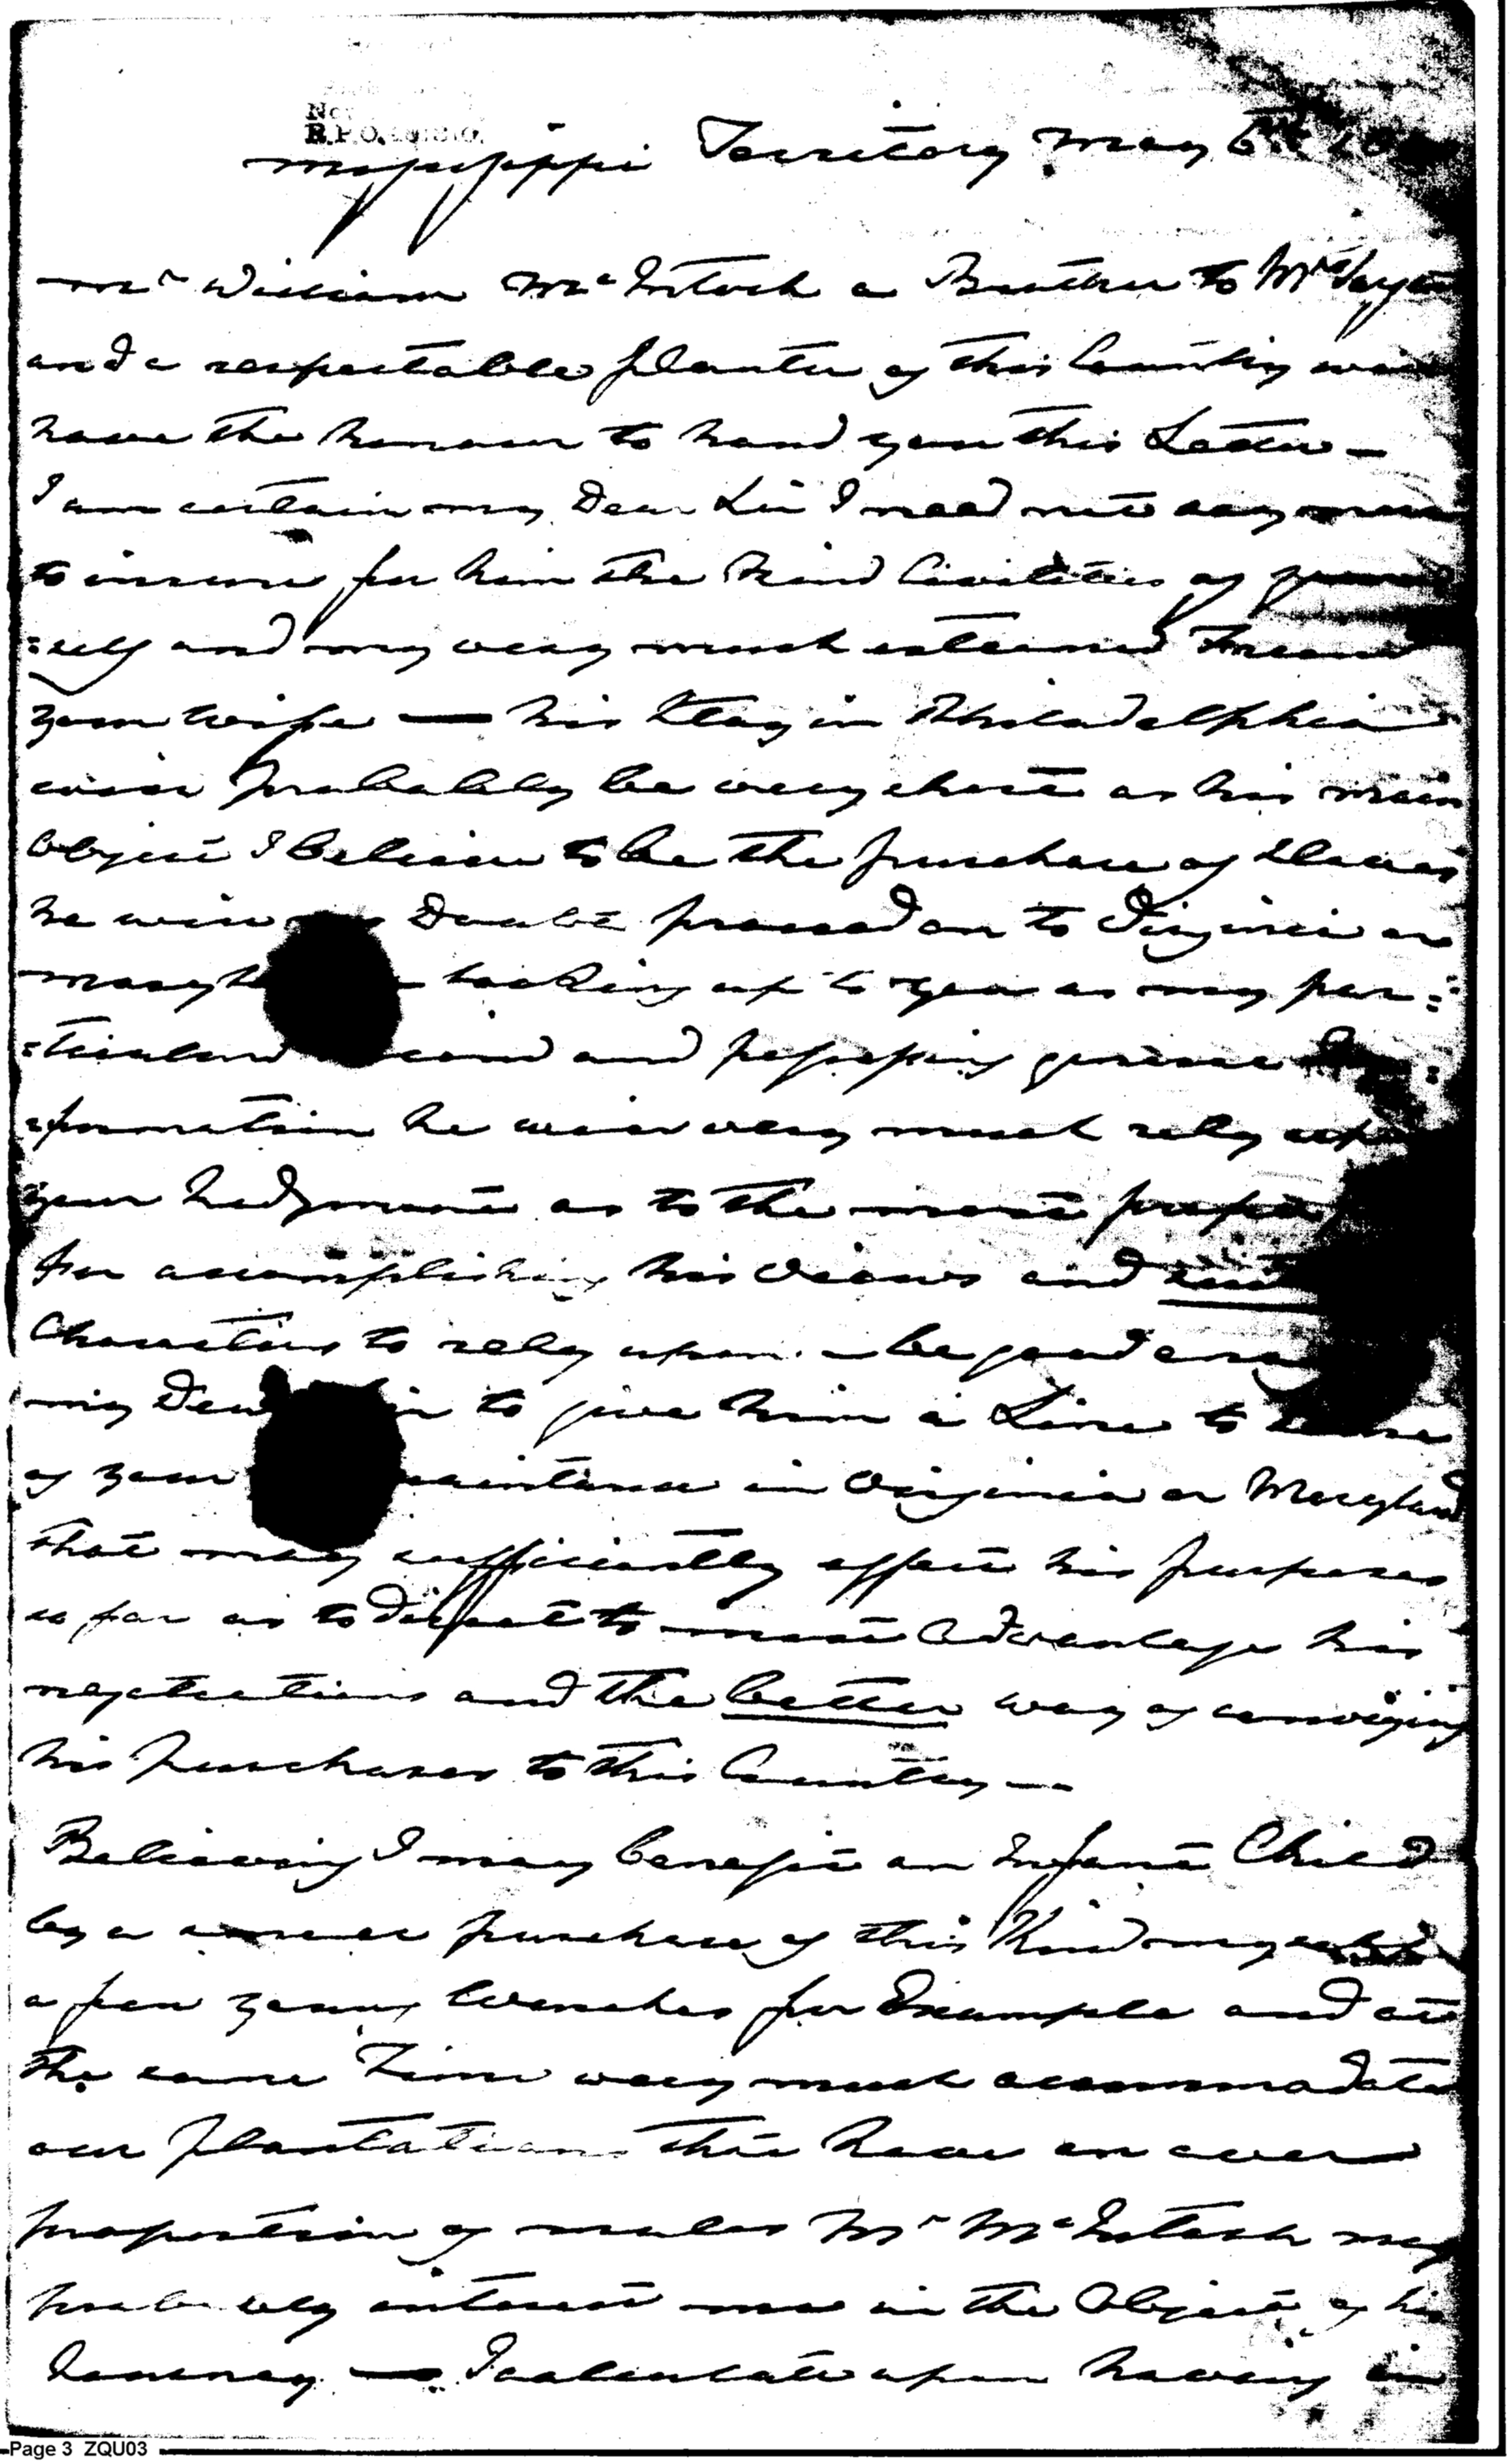 No
R.P.O.
Mississippi Territory May 6th 18
Mr William McIntosh a Brother to Mrs
and a respectable planter of this Country will
have the honour to hand you this Letter —
I am certain my Dear Sir I need not say more
to insure for him the kind Civilities of your
:self and my very much esteemed Friend
your Wife — his Stay in Philadelphia
will probably be very short as his main
Object I believe to be the purchase of Slaves
he will Doubt proceed on to Virginia or
looking up to you as my par:
:ticular and possessing general In:
:formation he will very much rely upon
your Judgment as to the most proper
for accomplishing his views and
Characters to rely upon. — be good
my Dear to give him a Line to some
of your in Virginia or Maryland
that may sufficiently effect his purposes
so far as to direct to most Advantage his
negotiations and the better way of conveying
his purchases to this Country —
Believing I may benefit an Infant Child
by a purchase of this Kind
a few young Wenches for Example and at
the same Time very much accommodate
our plantations that have an over
proportion of males Mr McIntosh may
probably interest me in the Object of his
Journey — I calculate upon having in
Page 3 ZQU03